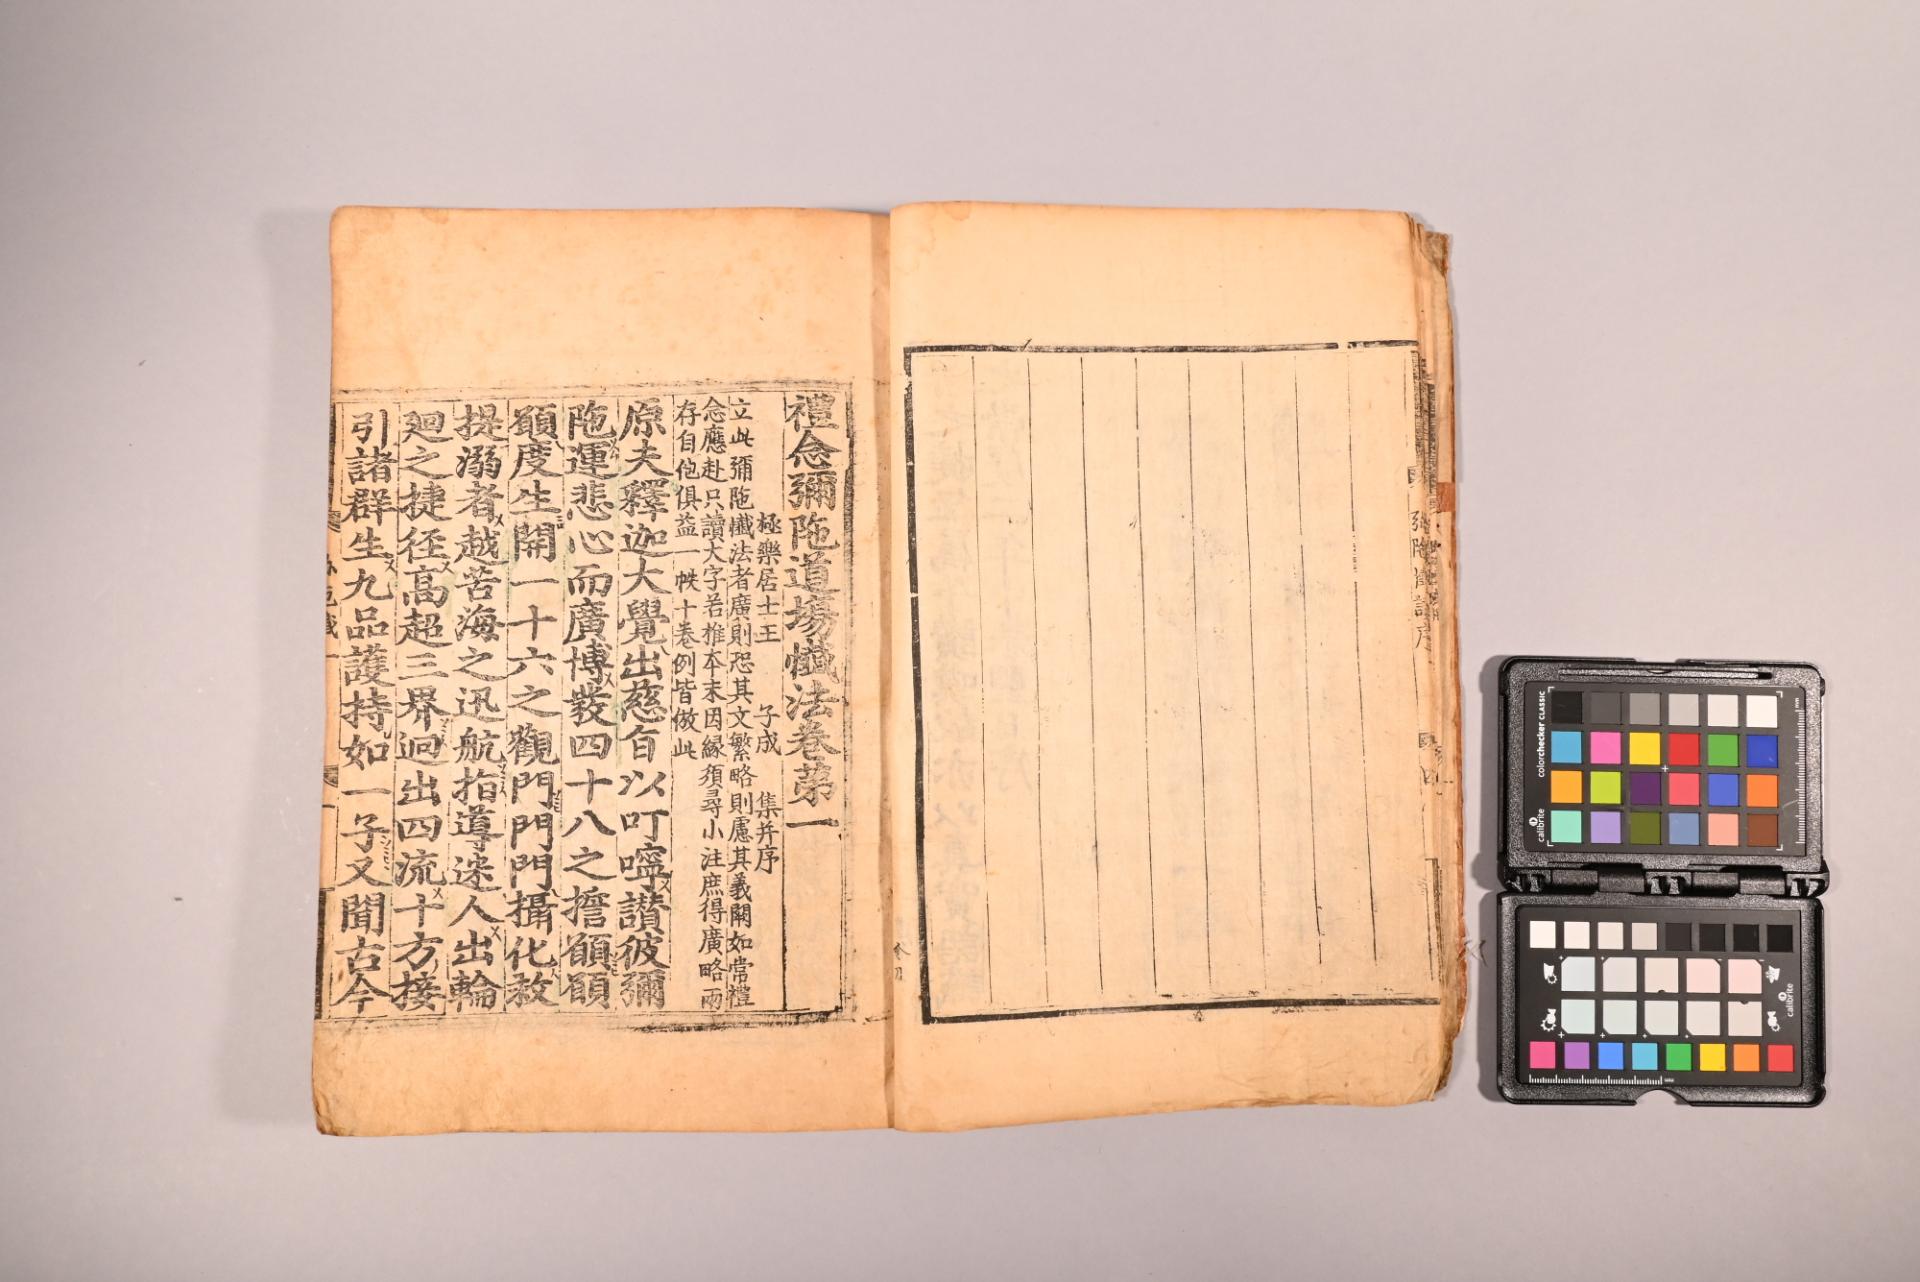 彌陁懺序
禮念彌陁道場懺法卷苐一
極樂居士王 子成 集并序
立此彌陁懺法者廣則恐其文繁略則慮其義闕如常禮
念應赴只讀大字若推夲末因緣須尋小注庶得廣略兩
存自他俱益一帙十卷例皆倣此
原夫釋迦大覺出慈旨以叮嚀讃彼彌
陁運悲心而廣博裝四十八之擔願願
願度生開一十六之觀門門門攝化救
提溺者越苦海之迅航指導迷人出輪
迴之捷徑高超三界迥出四流十方接
引諸群生九品護持如一子又聞古今
colorchecker CLASSIC
calibrite
calibrite